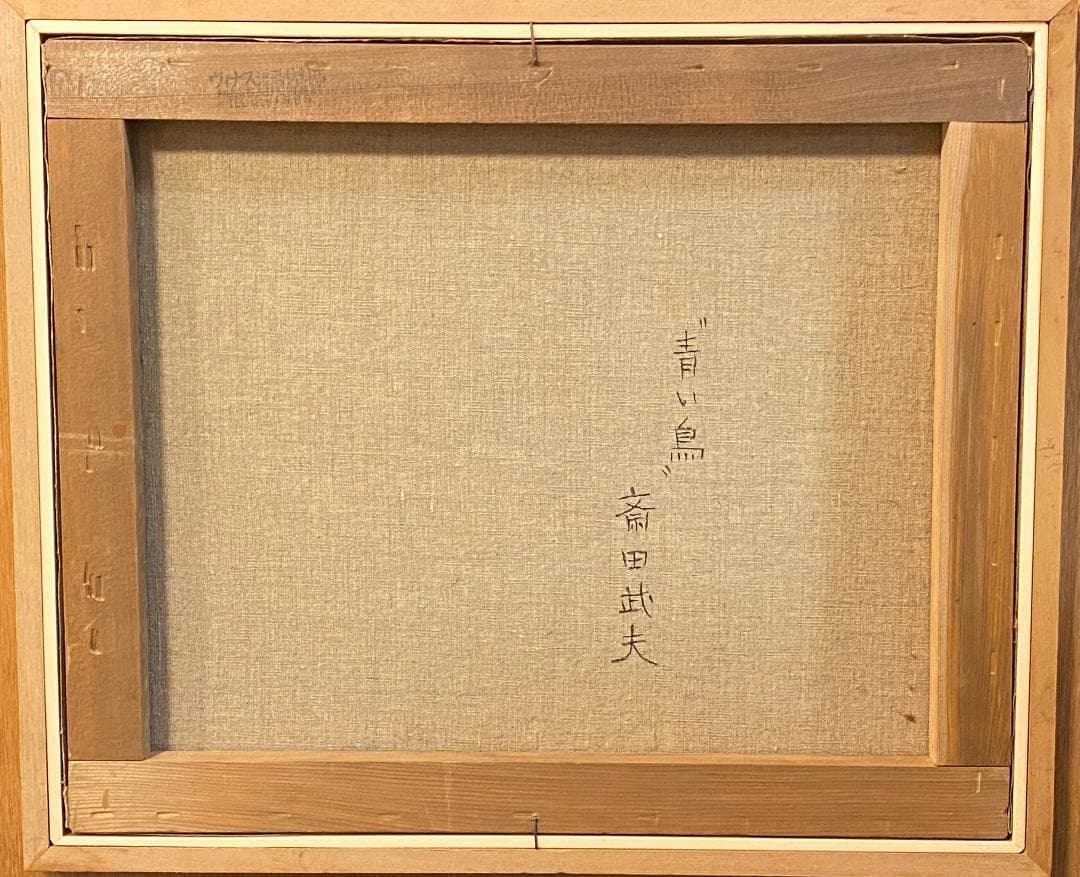 ヴィナス
"青い鳥"
斎田武夫